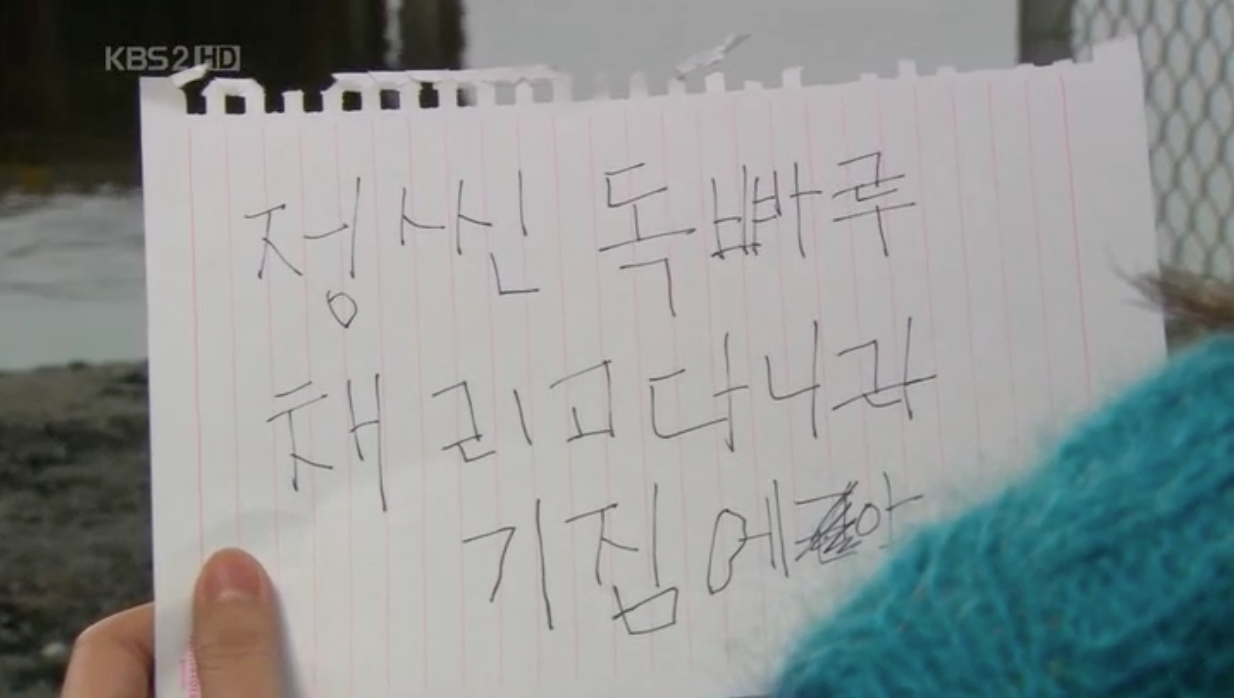 KBS2 HD
정싄 독빠루
채리고다니라
기집에 아